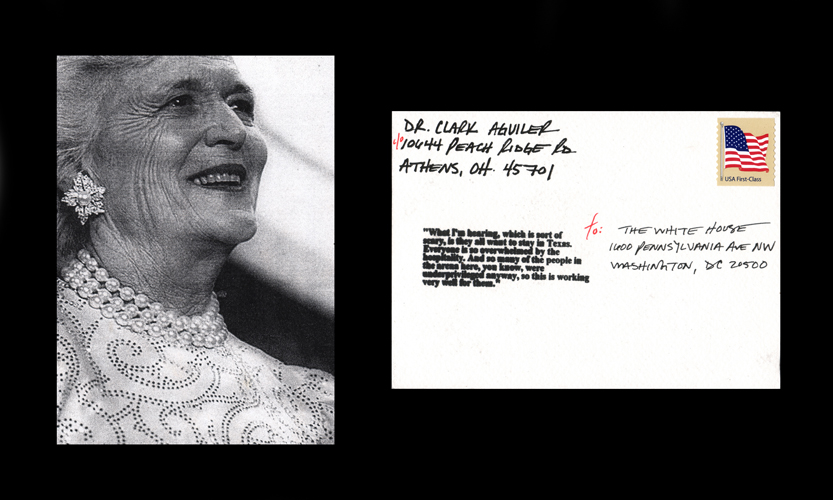 DR. CLARK AGUILER
c/o 10644 PEACH RIDGE RD
ATHENS, OH. 45701
USA First-Class
"What I'm hearing, which is sort of
scary, is they all want to stay in Texas.
Everyone is so overwhelmed by the
hospitality. And so many of the people in
the arena here, you know, were
underprivileged anyway, so this is working
very well for them."
to: THE WHITE HOUSE
1600 PENNSYLVANIA AVE NW
WASHINGTON, DC 20500